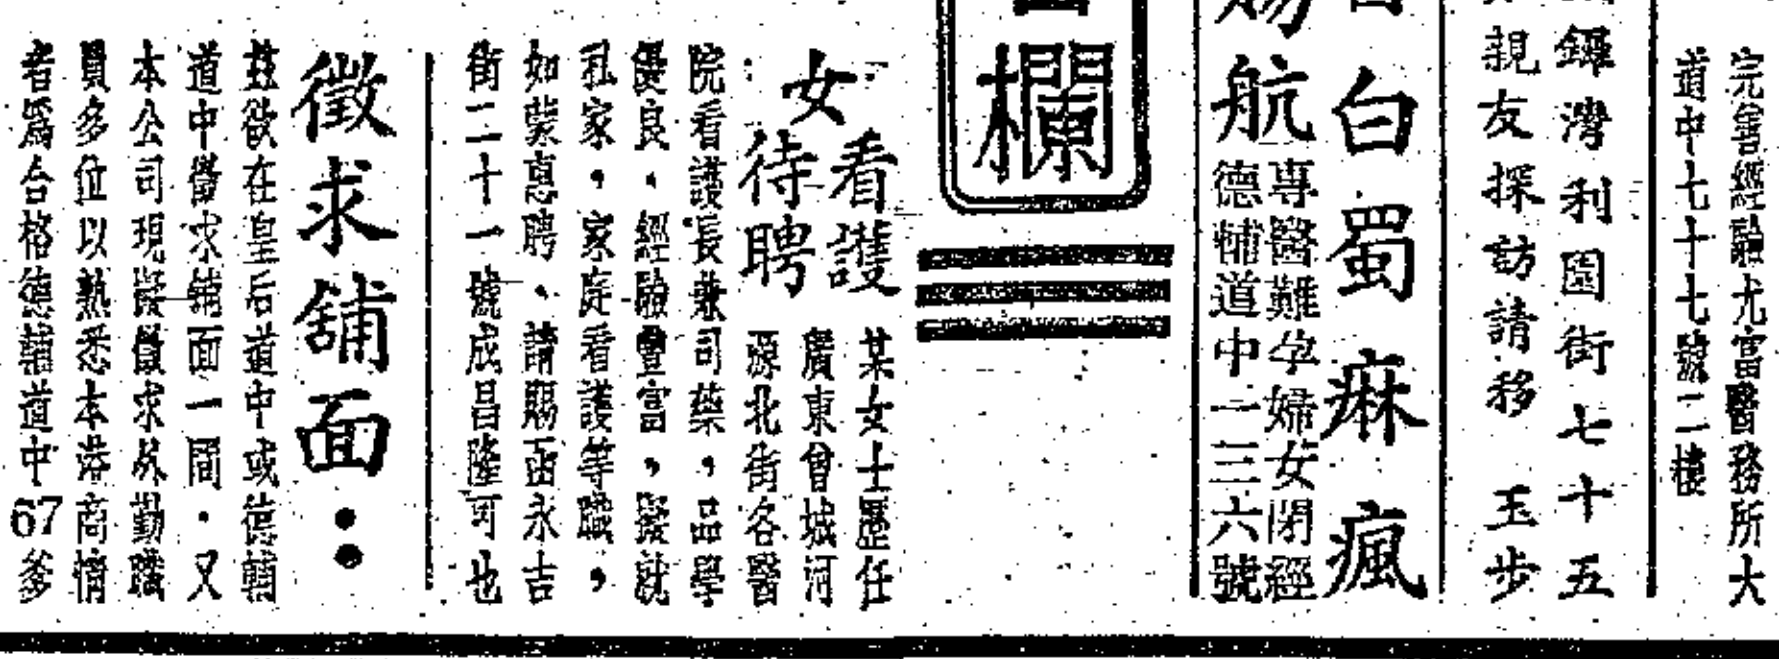 完善經驗尤富醫務所大
道中七十七號二樓
鑼灣利園街七十五
親友探訪請移 玉步
白蜀麻瘋
航
專醫難孕婦女閉經
德輔道中一三六號
欄
女看護待聘
某女士歷任
廣東曾城河
源北街各醫
院看護長兼司藥，品學
優良，經驗豐富，擬就
私家，家庭看護等職，
如蒙惠聘，請賜函永吉
街二十一號成昌隆可也
徵求舖面：
茲欲在皇后道中或德輔
道中徵求舖面一間．又
本公司現擬徵求外勤職
員多位以熟悉本港商情
者為合格德輔道中67爹